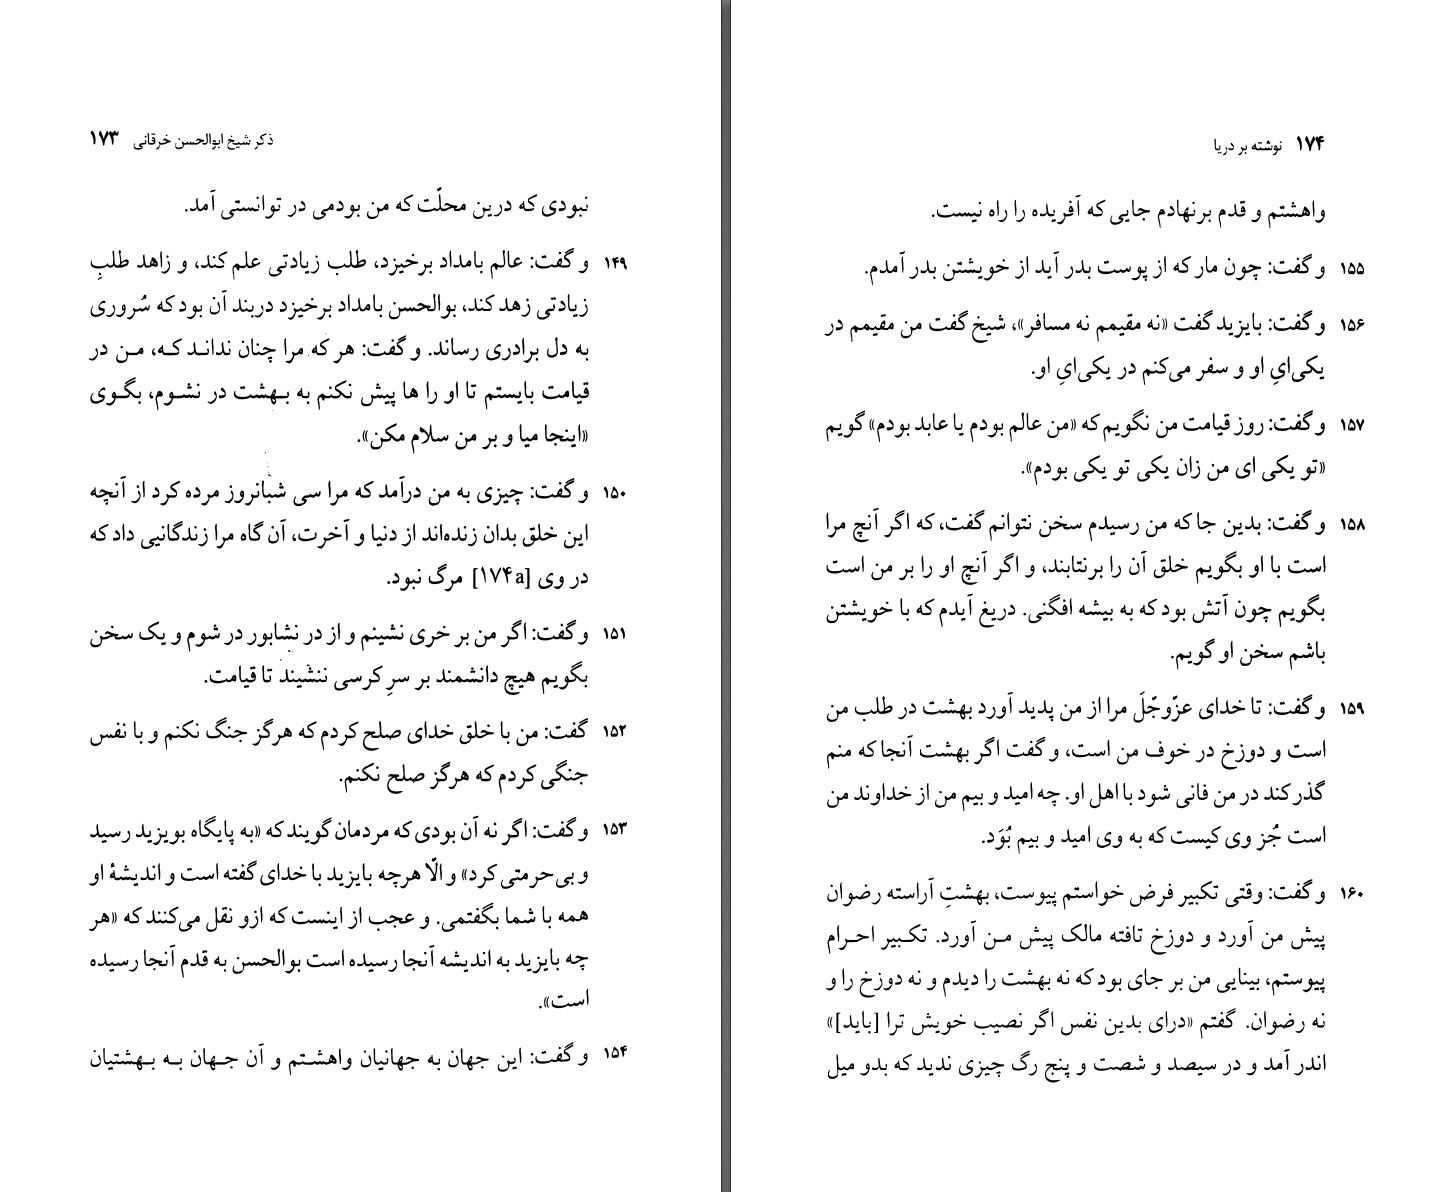 ذکر شیخ ابوالحسن خرقانی ۱۷۳
نبودی که درین محلّت که من بودمی در توانستی آمد.
۱۴۹ و گفت: عالم بامداد برخیزد، طلب زیادتی علم کند، و زاهد طلبِ
زیادتی زهد کند، بوالحسن بامداد برخیزد دربند آن بود که سُروری
به دل برادری رساند. و گفت: هر که مرا چنان نداند که، من در
قیامت بایستم تا او را ها پیش نکنم به بهشت در نشوم، بگوی
«اینجا میا و بر من سلام مکن».
۱۵۰ و گفت: چیزی به من درآمد که مرا سی شبانروز مرده کرد از آنچه
این خلق بدان زنده‌اند از دنیا و آخرت، آن گاه مرا زندگانیی داد که
در وی [۱۷۴a] مرگ نبود.
۱۵۱ و گفت: اگر من بر خری نشینم و از در نشابور در شوم و یک سخن
بگویم هیچ دانشمند بر سرِ کرسی ننشیند تا قیامت.
۱۵۲ گفت: من با خلق خدای صلح کردم که هرگز جنگ نکنم و با نفس
جنگی کردم که هرگز صلح نکنم.
۱۵۳ و گفت: اگر نه آن بودی که مردمان گویند که «به پایگاه بویزید رسید
و بی‌حرمتی کرد» و الّا هرچه بایزید با خدای گفته است و اندیشهٔ او
همه با شما بگفتمی. و عجب از اینست که ازو نقل می‌کنند که «هر
چه بایزید به اندیشه آنجا رسیده است بوالحسن به قدم آنجا رسیده
است».
۱۵۴ و گفت: این جهان به جهانیان واهشتم و آن جهان به بهشتیان
۱۷۴ نوشته بر دریا
واهشتم و قدم برنهادم جایی که آفریده را راه نیست.
۱۵۵ و گفت: چون مار که از پوست بدر آید از خویشتن بدر آمدم.
۱۵۶ و گفت: بایزید گفت «نه مقیمم نه مسافر»، شیخ گفت من مقیمم در
یکی‌ایِ او و سفر می‌کنم در یکی‌ایِ او.
۱۵۷ و گفت: روز قیامت من نگویم که «من عالم بودم یا عابد بودم» گویم
«تو یکی ای من زان یکی تو یکی بودم».
۱۵۸ و گفت: بدین جا که من رسیدم سخن نتوانم گفت، که اگر آنچ مرا
است با او بگویم خلق آن را برنتابند، و اگر آنچ او را بر من است
بگویم چون آتش بود که به بیشه افگنی. دریغ آیدم که با خویشتن
باشم سخن او گویم.
۱۵۹ و گفت: تا خدای عزّوجّلَ مرا از من پدید آورد بهشت در طلب من
است و دوزخ در خوف من است، و گفت اگر بهشت آنجا که منم
گذر کند در من فانی شود با اهل او. چه امید و بیم من از خداوند من
است جُز وی کیست که به وی امید و بیم بُوَد.
۱۶۰ و گفت: وقتی تکبیر فرض خواستم پیوست، بهشتِ آراسته رضوان
پیش من آورد و دوزخ تافته مالک پیش من آورد. تکبیر احرام
پیوستم، بینایی من بر جای بود که نه بهشت را دیدم و نه دوزخ را و
نه رضوان. گفتم «درای بدین نفس اگر نصیب خویش ترا [باید]»
اندر آمد و در سیصد و شصت و پنج رگ چیزی ندید که بدو میل